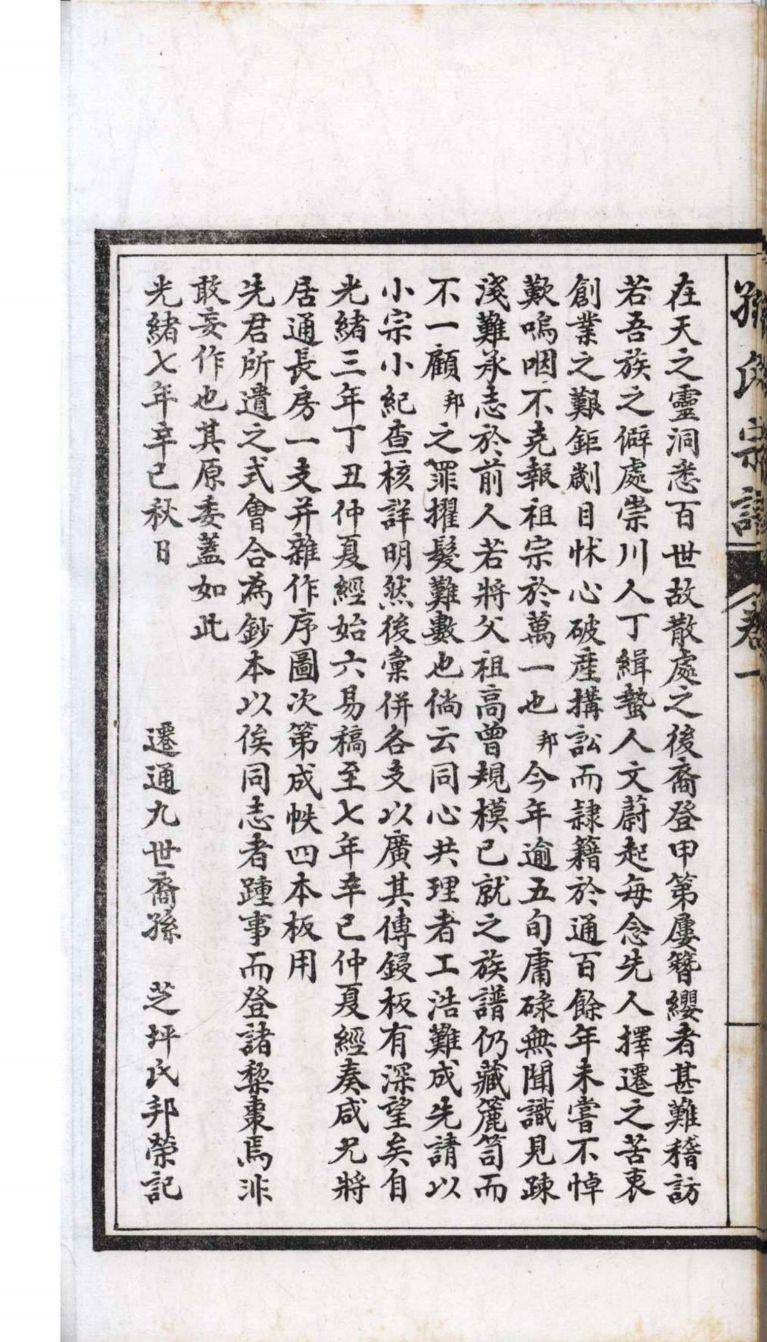 宗譜 卷一
在天之靈洞悉百世故散處之後裔登甲第屢簪纓者甚難稽訪
若吾族之僻處崇川人丁緝蟄人文蔚起每念先人擇遷之苦衷
創業之艱鉅劌目怵心破產搆訟而隸籍於通百餘年未嘗不悼
歎嗚咽不克報祖宗於萬一也邦今年逾五旬庸碌無聞識見踈
淺難承志於前人若將父祖高曾規模已就之族譜仍藏簏笥而
不一顧邦之罪擢髮難數也倘云同心共理者工浩難成先請以
小宗小紀查核詳明然後彙併各支以廣其傳鋟板有深望矣自
光緒三年丁丑仲夏經始六易稿至七年辛巳仲夏經奏咸允將
居通長房一支并雜作序圖次第成帙四本板用
先君所遺之式會合為鈔本以俟同志者踵事而登諸梨棗焉非
敢妄作也其原委蓋如此
光緒七年辛巳秋日
遷通九世裔孫 芝坪氏邦榮記